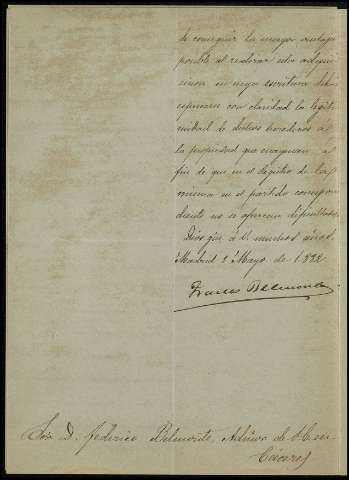 de conseguir la mayor ventaja
posible al realizar esta adqui-
sicion en cuya escritura debe
espresarse con claridad la legiti-
midad de dichos herederos á
la propiedad que enagenan á
fin de que en el Registro de la
misma en el partido correspon-
diente no se ofrezcan dificultades.
Dios gũe á V. muchos años.
Madrid 2 Mayo de 1882
Belmonte
Sor. D. Federico Belmonte, Admor de S. E. en
Cáceres